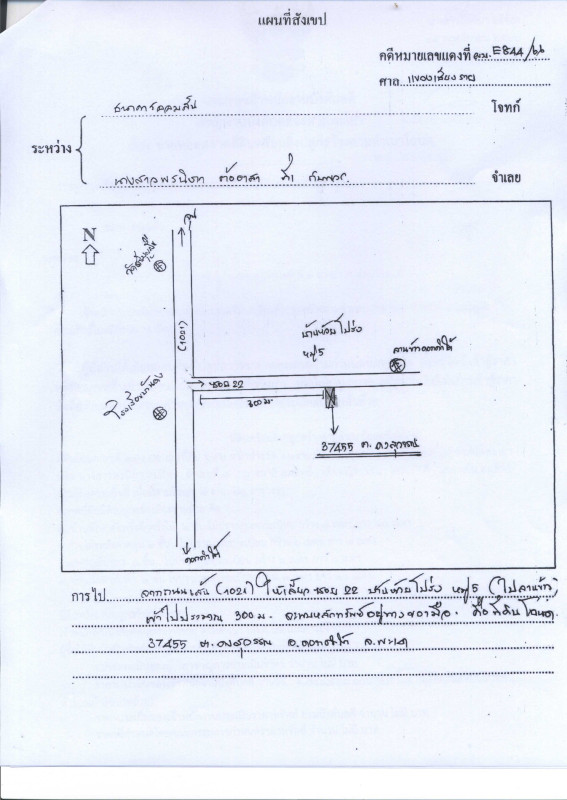 แผนที่สังเขป
คดีหมายเลขแดงที่ ผบ. E844/66
ศาล แขวงเชียงราย
ธนาคารออมสิน โจทก์
ระหว่าง
นางสาวพรนิชา จำเลย
N
จุน
(1021)
บ้านห้วยโป่ง
หมู่ 5
ลานข้าวดอกคำใต้
ซอย 22
300 ม.
37455 ต. ดงสุวรรณ
ดอกคำใต้
การไป จากถนนเส้น (1021) ให้เลี้ยว ซอย 22 บ้านห้วยโป่ง หมู่ 5
เข้าไปประมาณ 300 ม. จะพบหลักทรัพย์อยู่ทางขวามือ. คือที่ดินโฉนด
37455 ต. ดงสุวรรณ อ. ดอกคำใต้ จ. พะเยา